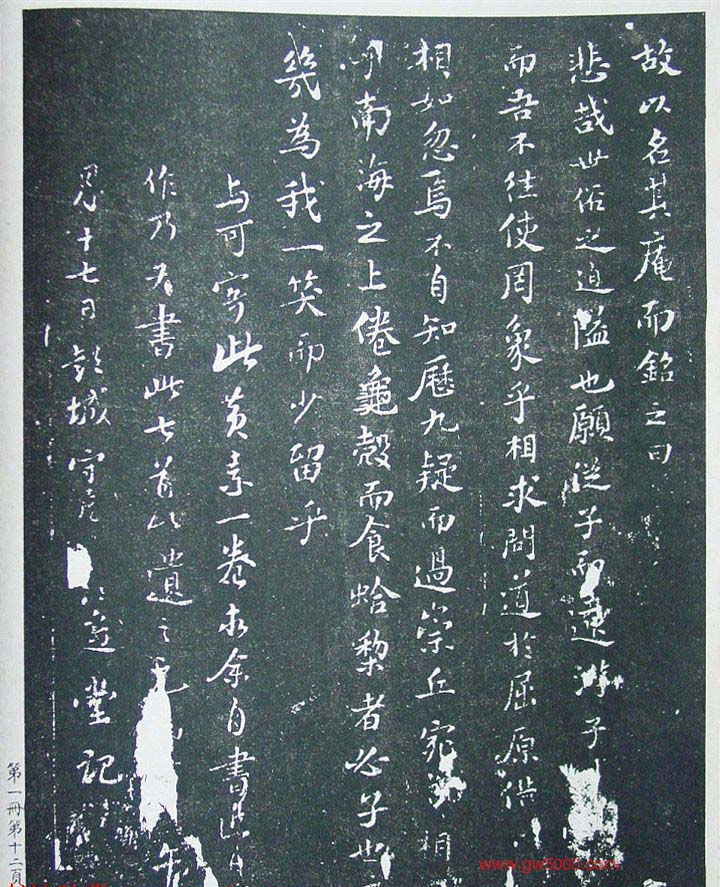 故以名其庵而銘之曰
悲哉世俗之迫隘也願從子而遠游子
而吾不往使罔象乎相求問道於屈原借
相如忽焉不自知歷九疑而過崇丘宛 相
南海之上倦龜殼而食蛤棃者必子也
幾為我一笑而少留乎
与可寄此黄素一卷求余自書
作乃为書此七首以遺之元
月十七日彭城守居 堂記
第一冊第十二頁
www.gw5000.com